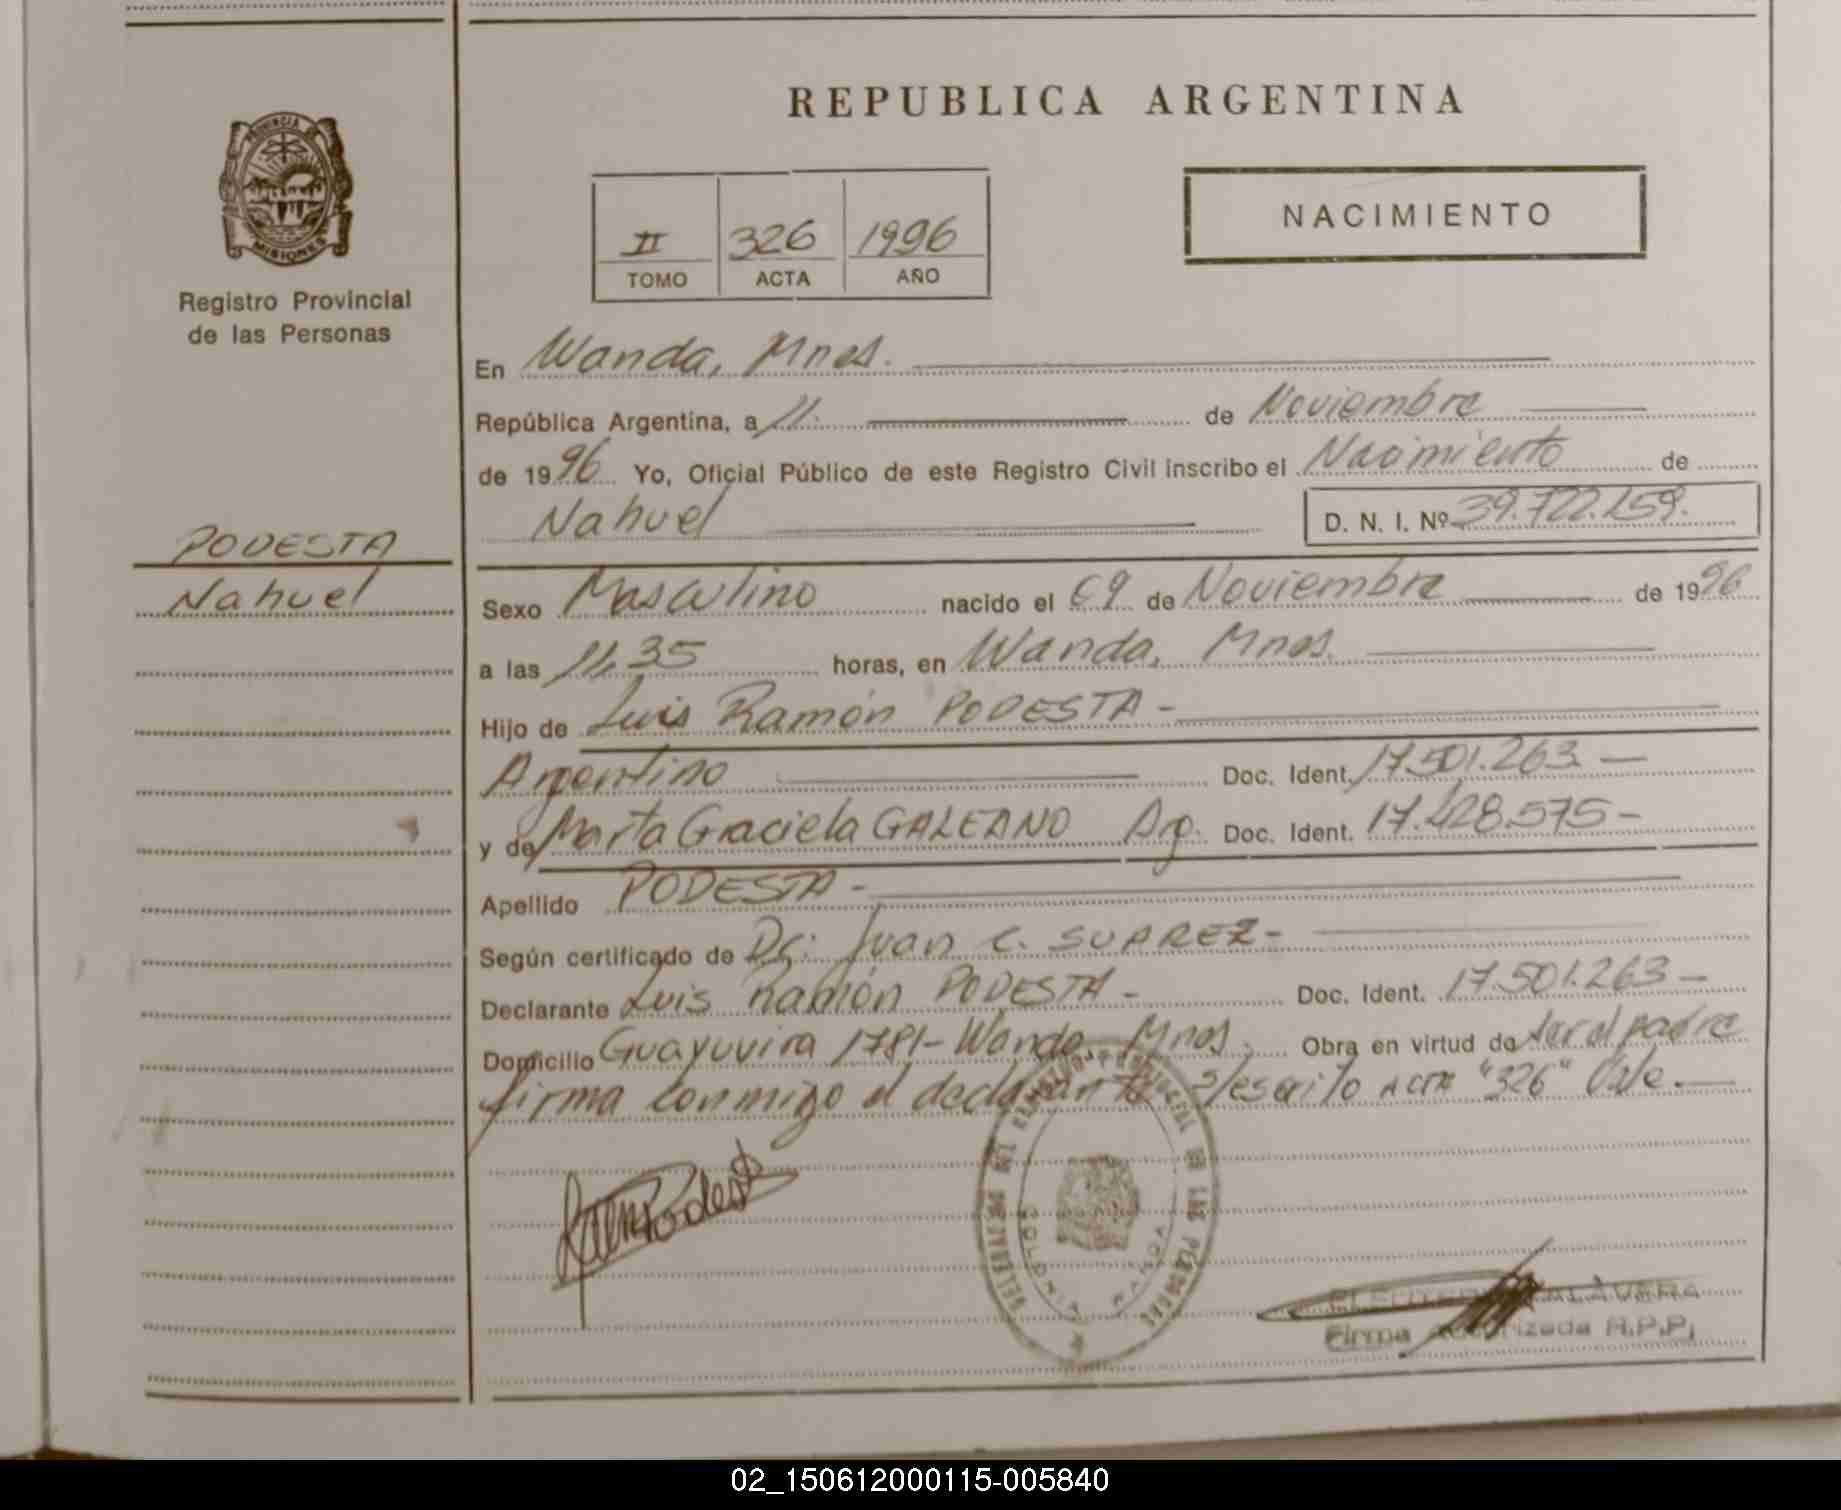 PROVINCIA DE
MISIONES
Registro Provincial
de las Personas
PODESTA
Nahuel
REPUBLICA ARGENTINA
II 326 1996
TOMO ACTA AÑO
NACIMIENTO
En Wanda, Mnes.
República Argentina, a 11. de Noviembre
de 1996 Yo, Oficial Público de este Registro Civil inscribo el Nacimiento de
Nahuel D. N. I. Nº 39.722.159.
Sexo Masculino nacido el 09 de Noviembre de 1996
a las 11.35 horas, en Wanda, Mnes.
Hijo de Luis Ramón PODESTA -
Argentino Doc. Ident. 17.501.263. —
y de Marta Graciela GALEANO Arg. Doc. Ident. 17.428.575 -
Apellido PODESTA -
Según certificado de Dr: Juan C. SUAREZ -
Declarante Luis Ramón PODESTA - Doc. Ident. 17.501.263 —
Domicilio Guayuvira 1781 - Wanda Mnes. Obra en virtud de ser el padre
firma conmigo el declarante s/escrito ACTA "326" Vale. —
COLONIA WANDA
Podesta
ELEUTERIO TALAVERA
Firma Autorizada R.P.P.
02_150612000115-005840